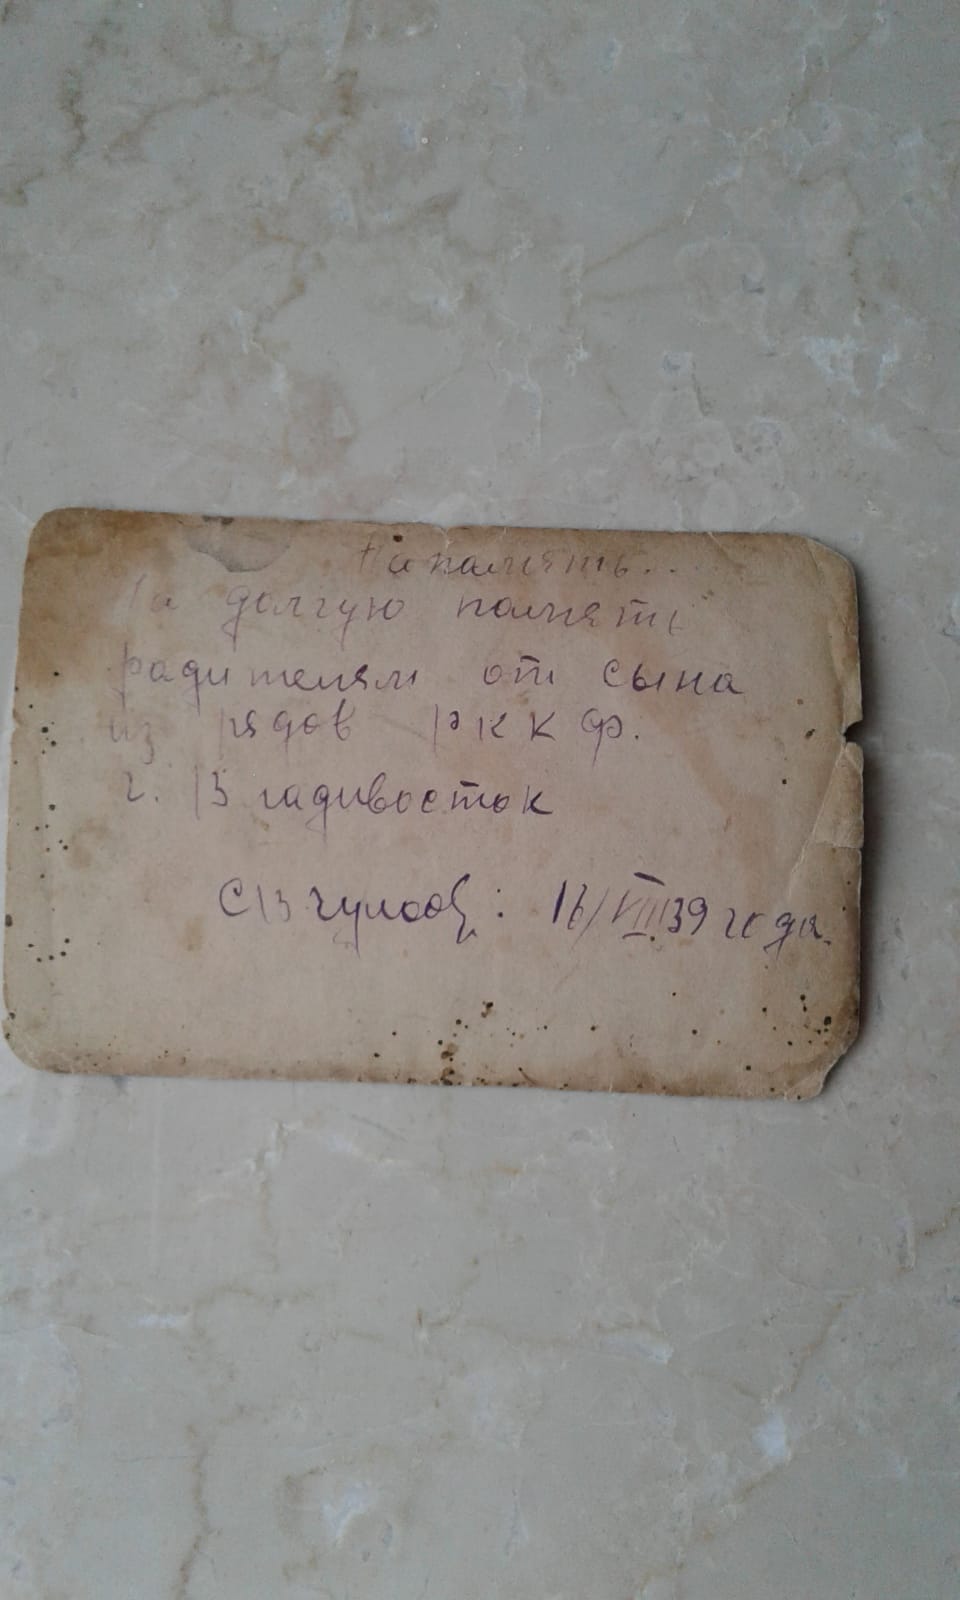 На память...
На долгую память
радителям от сына
из рядов РККФ.
г. Владивосток
16/VIII 39 года.